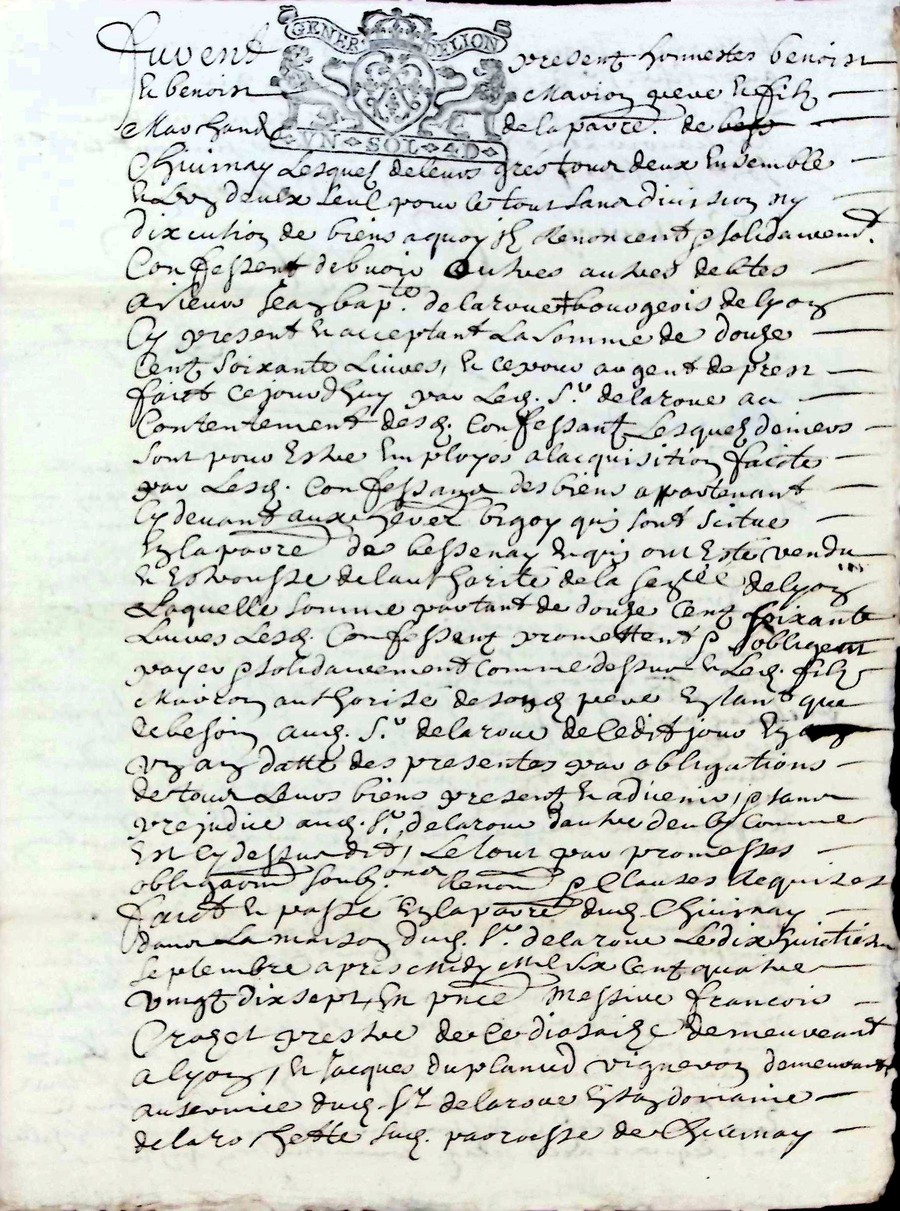 GENER DELION
furent present honnestes benoist
et benoist Mavion pere et filz
Marchand de la parre. de
Chivinay Lesquelz de leurs gres tous deux Ensemble
et L'un d'eulx seul pour le tout sans division ny
dixcution de biens a quoy ilz Renoncent solidairement
Confessent debvoir Oultres aultres debtes
a sieur Jean bapte. de laroue bourgeois de lyon
Cy present et acceptant La Somme de douze
Cent Soixante Livres, et ce pour argent de prest
faict ce jourdhuy par Led. Sr. de laroue au
Contentement desd. Confessantz Lesquelz deniers
sont pour Estre Employes a lacquisition faicte
par Lesd. Confessans des biens appartenant
Cy devant aux bigoy qui sont scitue
En la parre de bessenay et qui ont Esté vendu
et Estrousse de lauthorité de la de lyon
Laquelle somme partant de douze Cent soixante
Livres Lesd. Confessentz promettent s'obligent
payer solidairement Comme dessus et Led. filz
Mavion authorisé de sond pere En tant que
de besoin aud. Sr. de laroue de Cedit jour En
un an datte des presentes par obligations
de tous Leurs biens present et advenir, sans
prejudice aud. Sr. de laroue daultre deub Comme
Est Cy dessus dit, Le tout par promesses
obligaons soubz.ons Renons Clauses Requises
faict et passe En la parre dud. Chivinay
dans La maison dud. Sr. de laroue Le dix huictiesme
septembre apres midy mil six cent quatre
vingt dix sept, En pnce Messire francois
Crozet prestre de ce diosaize demeurant
a lyon, et Jacque duplanid vigneron demeurant
au service dud. Sr de laroue En son domaine
de la rochette sud. parroisse de Chivinay
VN · SOL · 4D